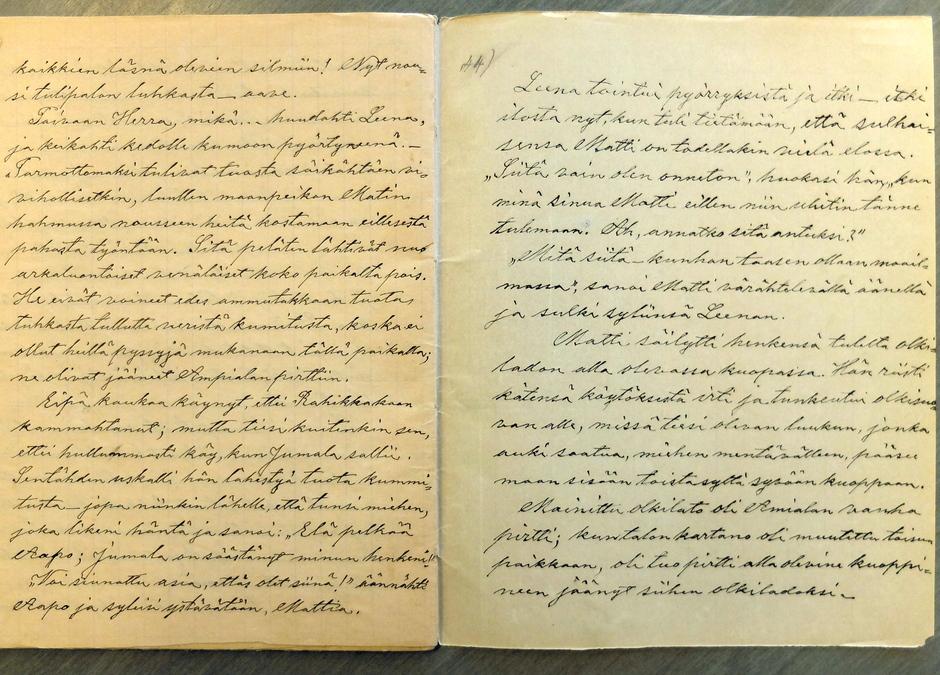 kaikkien läsnä olevien silmiin! Nyt nou-
si tulipalon tuhkasta — aave.
Taivaan Herra, mikä... huudahti Leena,
ja keikahti kedolle kumoon pyörtyneenä. —
Tarmottomaksi tulivat tuosta säikähtäen vi-
vihollisetkin, luullen maanpeikon Matin
hahmussa nousseen heitä kostamaan eillisestä
pahasta työntään. Sitä peläten lähtivät nuo
arkaluontoiset venäläiset koko paikalta pois.
He eivät voineet edes ammutakkaan tuota,
tuhkasta tullutta veristä kumitusta, koska ei
ollut heillä pyssyjä mukanaan tällä paikalla;
ne olivat jääneet Ampialan pirttiin.
Eipä kaukaa käynyt, ettei Rahikkakaan
kammahtanut; mutta tiesi kuitenkin sen,
ettei hullummasti käy, kun Jumala sallii.
Sentähden uskalti hän lähestyä tuota kummi-
tusta — jopa niinkin lähelle, että tunsi miehen,
joka likeni häntä ja sanoi: „Elä pelkää
Aapo; Jumala on säästänyt minun henkeni!"
„Voi siunattu asia, ettäs olet siinä!" äännähti
Aapo ja syleili ystävätään, Mattia.
44)
Leena tointui pyörryksistä ja itki — itki
ilosta nyt kun tuli tietämään, että sulhai-
sensa Matti on todellakin vielä elossa.
„Siitä vain olen onneton", huokasi hän, „kun
minä sinua Matti eillen niin uhitin tänne
tulemaan. Oh, annatko sitä anteiksi?"
„Mitä siitä — kunhan taasen ollaan maail-
massa", sanoi Matti värähtelevällä äänellä
ja sulki syliinsä Leenan.
Matti säilytti henkensä tulelta olki-
ladon alla olevassa kuopassa. Hän riisti
kätensä köytöksistä irti ja tunkeutui olkisuo-
van alle, missä tiesi olevan luukun, jonka
auki saatua, miehen mentävälleen, pääsee
maan sisään toista syltä syvään kuoppaan.
Mainittu olkilato oli Amialan vanha
pirtti; kun talon kartano oli muutettu toiseen
paikkaan, oli tuo pirtti alla olevine kuoppi-
neen jäänyt siihen olkiladoksi —